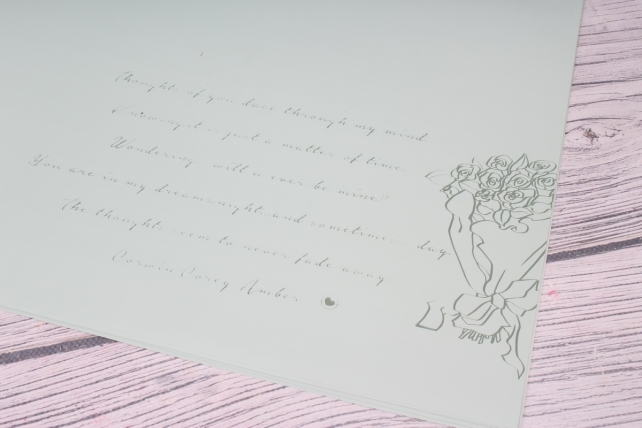 Thoughts of you dance through my mind
Knowing it is just a matter of time
Wondering will u ever be mine?
You are in my dreams nights and sometimes days
The thoughts seem to never fade away
Corwin Corey Amber